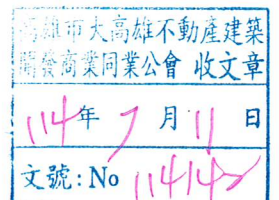 高雄市大高雄不動產建築
開發商業同業公會 收文章
114年 7 月 11 日
文號: No 11414